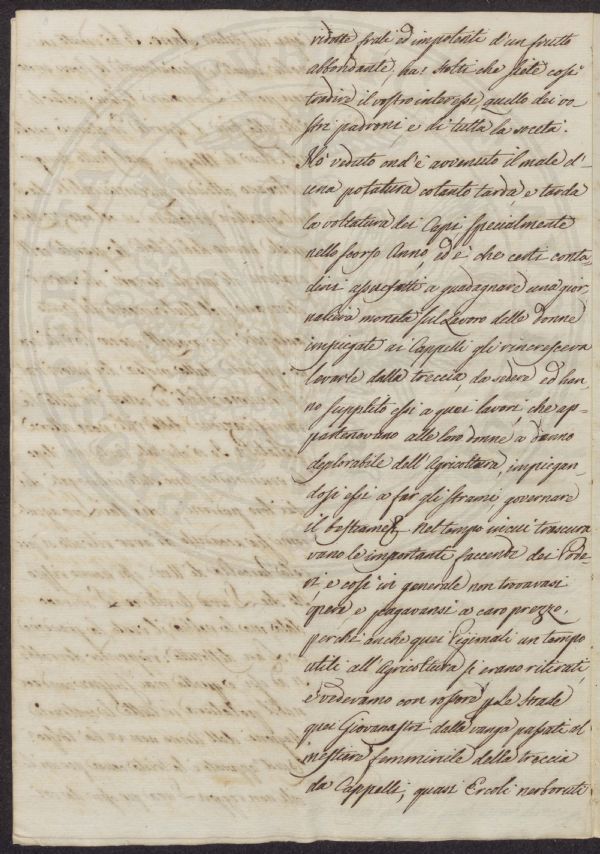 ridotte frali ed impotenti d'un frutto
abbondante, ha! stolti che siete così
tradire il vostro interesse, quello dei vo-
stri padroni, e di tutta la società.
Hò veduto ond'è avvenuto il male d'
una potatura cotanto tarda, e tarda
la voltatura dei Capi, specialmente
nello scorso Anno, ed è che certi conta-
dini assuefatti a guadagnare una gior-
naliera moneta sul Lavoro delle donne
impiegate ai Cappelli gli rincresceva
levarle dalla treccia, da sedere ed han-
no supplito essi a quei lavori, che ap-
partenevano alle loro donne a danno
deplorabile dell'Agricoltura, impiegan-
dosi essi a far gli strami governare
il bestiame & nel tempo in cui trascura
vano le importanti faccende dei Pode-
ri, e così in generale non trovavasi
opere e pagavansi a caro prezzo,
perché anche quei Pigionali un tempo
utili all'Agricoltura si erano ritirati,
e vedevamo con rossore p. Le strade
quei Giovanastri dalla vanga passati al
mestiere femminile della treccia
da Cappelli, quasi Ercoli nerboruti